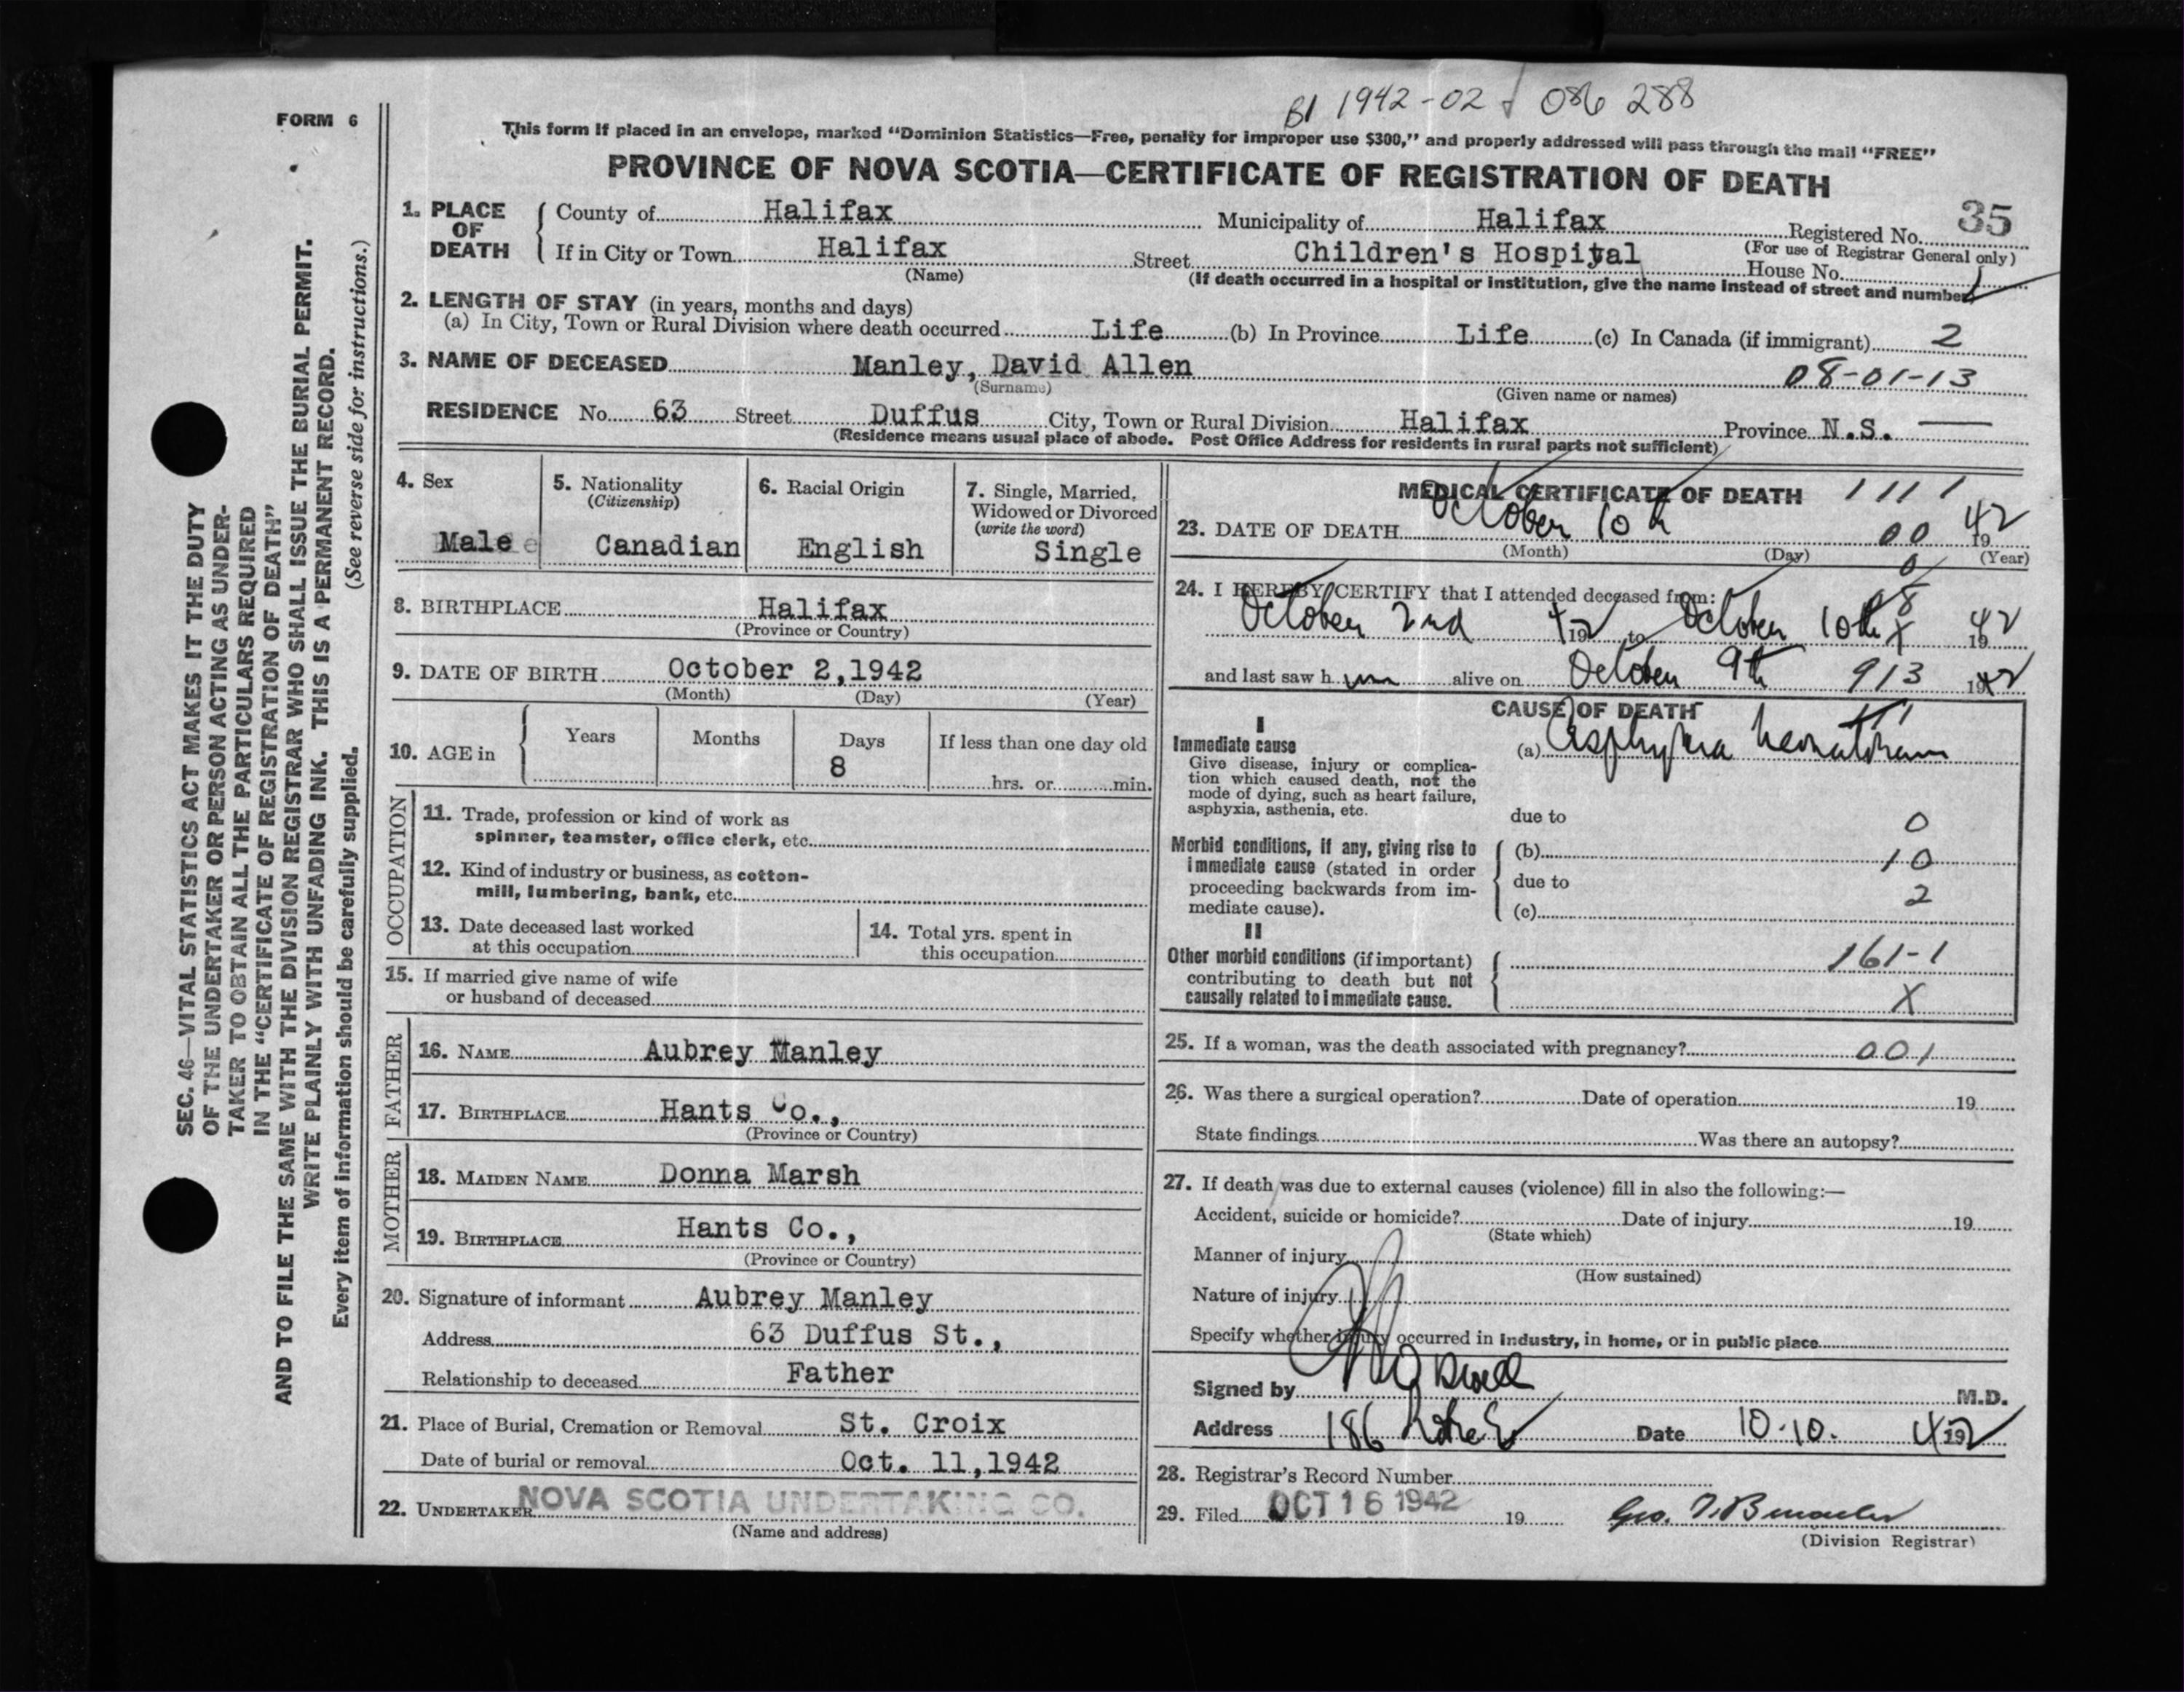 B1 1942-02 086 288
FORM 6
This form if placed in an envelope, marked “Dominion Statistics—Free, penalty for improper use $300,” and properly addressed will pass through the mail “FREE”
PROVINCE OF NOVA SCOTIA—CERTIFICATE OF REGISTRATION OF DEATH
35
1. PLACE OF DEATH County of Halifax Municipality of Halifax Registered No.
(For use of Registrar General only)
If in City or Town Halifax Street Children's Hospital House No.
(Name) (If death occurred in a hospital or institution, give the name instead of street and number)
2. LENGTH OF STAY (in years, months and days)
(a) In City, Town or Rural Division where death occurred Life (b) In Province Life (c) In Canada (if immigrant) 2
3. NAME OF DECEASED Manley, David Allen 08-01-13
(Surname) (Given name or names)
RESIDENCE No. 63 Street Duffus City, Town or Rural Division Halifax Province N.S.
(Residence means usual place of abode. Post Office Address for residents in rural parts not sufficient)
4. Sex
Male
5. Nationality
(Citizenship)
Canadian
6. Racial Origin
English
7. Single, Married,
Widowed or Divorced
(write the word)
Single
8. BIRTHPLACE Halifax
(Province or Country)
9. DATE OF BIRTH October 2,1942
(Month) (Day) (Year)
10. AGE in Years Months Days If less than one day old
8 hrs. or min.
OCCUPATION
11. Trade, profession or kind of work as
spinner, teamster, office clerk, etc.
12. Kind of industry or business, as cotton-
mill, lumbering, bank, etc.
13. Date deceased last worked
at this occupation
14. Total yrs. spent in
this occupation
15. If married give name of wife
or husband of deceased
FATHER
16. NAME Aubrey Manley
17. BIRTHPLACE Hants Co.,
(Province or Country)
MOTHER
18. MAIDEN NAME Donna Marsh
19. BIRTHPLACE Hants Co.,
(Province or Country)
20. Signature of informant Aubrey Manley
Address 63 Duffus St.,
Relationship to deceased Father
21. Place of Burial, Cremation or Removal St. Croix
Date of burial or removal Oct. 11,1942
22. UNDERTAKER NOVA SCOTIA UNDERTAKING CO.
(Name and address)
MEDICAL CERTIFICATE OF DEATH 1111
23. DATE OF DEATH October 10th 00 1942
(Month) (Day) (Year)
0
24. I HEREBY CERTIFY that I attended deceased from: 08
October 2nd 1942 to October 10th X 1942
and last saw h im alive on October 9th 913 1942
CAUSE OF DEATH
I
Immediate cause
Give disease, injury or complica-
tion which caused death, not the
mode of dying, such as heart failure,
asphyxia, asthenia, etc.
(a) Asphyxia neonatorum
due to 0
Morbid conditions, if any, giving rise to
immediate cause (stated in order
proceeding backwards from im-
mediate cause).
(b) 10
due to 2
(c)
II
Other morbid conditions (if important)
contributing to death but not
causally related to immediate cause.
161-1
X
25. If a woman, was the death associated with pregnancy? 001
26. Was there a surgical operation? Date of operation 19
State findings Was there an autopsy?
27. If death was due to external causes (violence) fill in also the following:—
Accident, suicide or homicide? Date of injury 19
(State which)
Manner of injury
(How sustained)
Nature of injury
Specify whether injury occurred in industry, in home, or in public place
Signed by M.D.
Address 186 Date 10.10. 1942
28. Registrar's Record Number
29. Filed OCT 16 1942 19
(Division Registrar)
SEC. 46—VITAL STATISTICS ACT MAKES IT THE DUTY
OF THE UNDERTAKER OR PERSON ACTING AS UNDER-
TAKER TO OBTAIN ALL THE PARTICULARS REQUIRED
IN THE “CERTIFICATE OF REGISTRATION OF DEATH”
AND TO FILE THE SAME WITH THE DIVISION REGISTRAR WHO SHALL ISSUE THE BURIAL PERMIT.
WRITE PLAINLY WITH UNFADING INK. THIS IS A PERMANENT RECORD.
Every item of information should be carefully supplied. (See reverse side for instructions.)